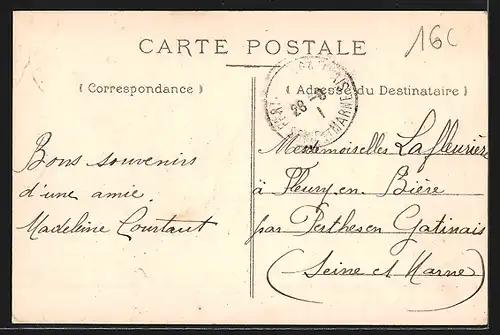 16C
CARTE POSTALE
( Correspondance )
( Adresse du Destinataire )
28 - 8
MARNE
Bons souvenirs
d'une amie.
Madeleine Courtaut
Mesdemoiselles Lafleurière
à Fleury en Bière
par Perthes en Gatinais
(Seine et Marne)